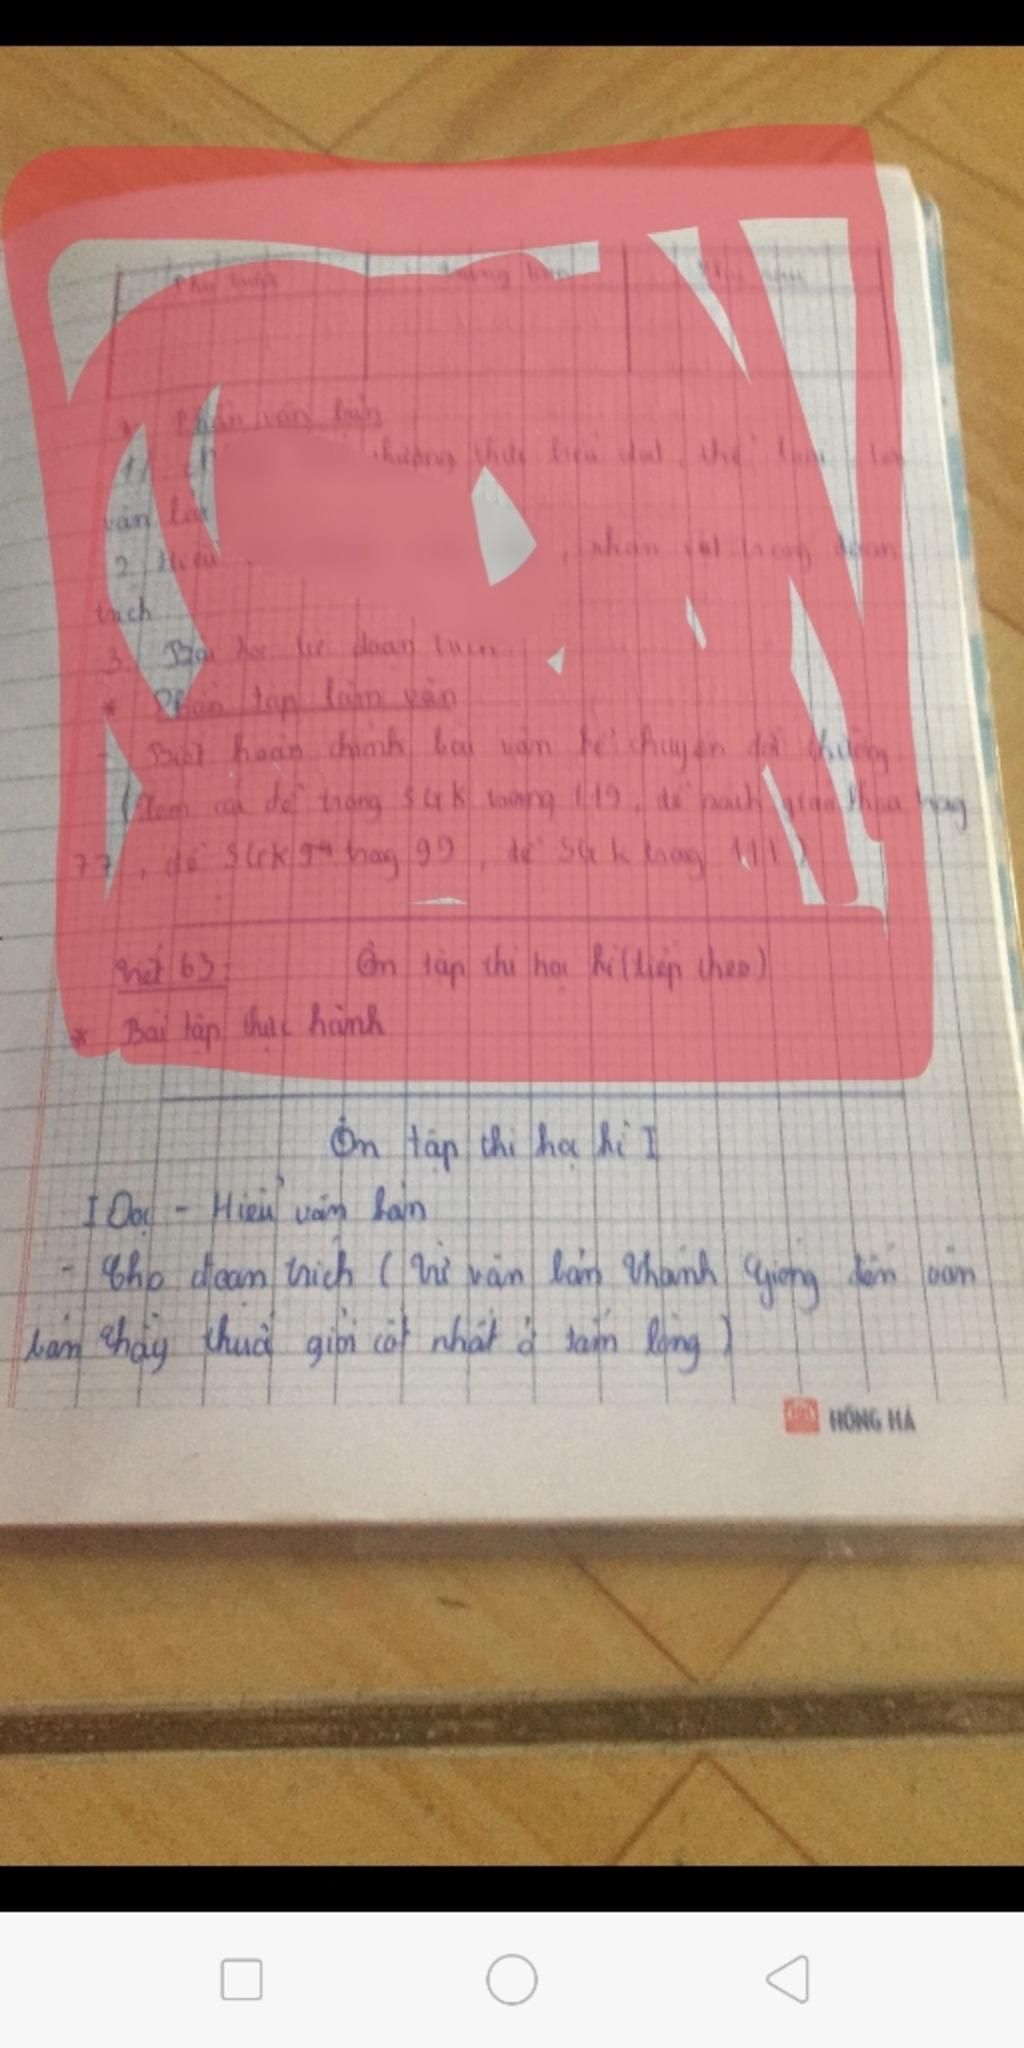 * Phần văn bản
phương thức biểu đạt, thể loại
văn
2. Hiểu , nhân vật trong đoạn
trích
3. Bài học từ đoạn trích
* Phần tập làm văn
- Biết hoàn chỉnh bài văn kể chuyện đời thường
(Xem các đề trong SGK trang 119, đề sách giáo khoa trang
77, đề SGK trang 99, đề SGK trang 111)
Tiết 63: Ôn tập thi học kì (tiếp theo)
* Bài tập thực hành
Ôn tập thi học kì I
I Đọc - Hiểu văn bản
- Cho đoạn trích (từ văn bản Thánh Gióng đến văn
bản Thầy thuốc giỏi cốt nhất ở tấm lòng)
HỒNG HÀ